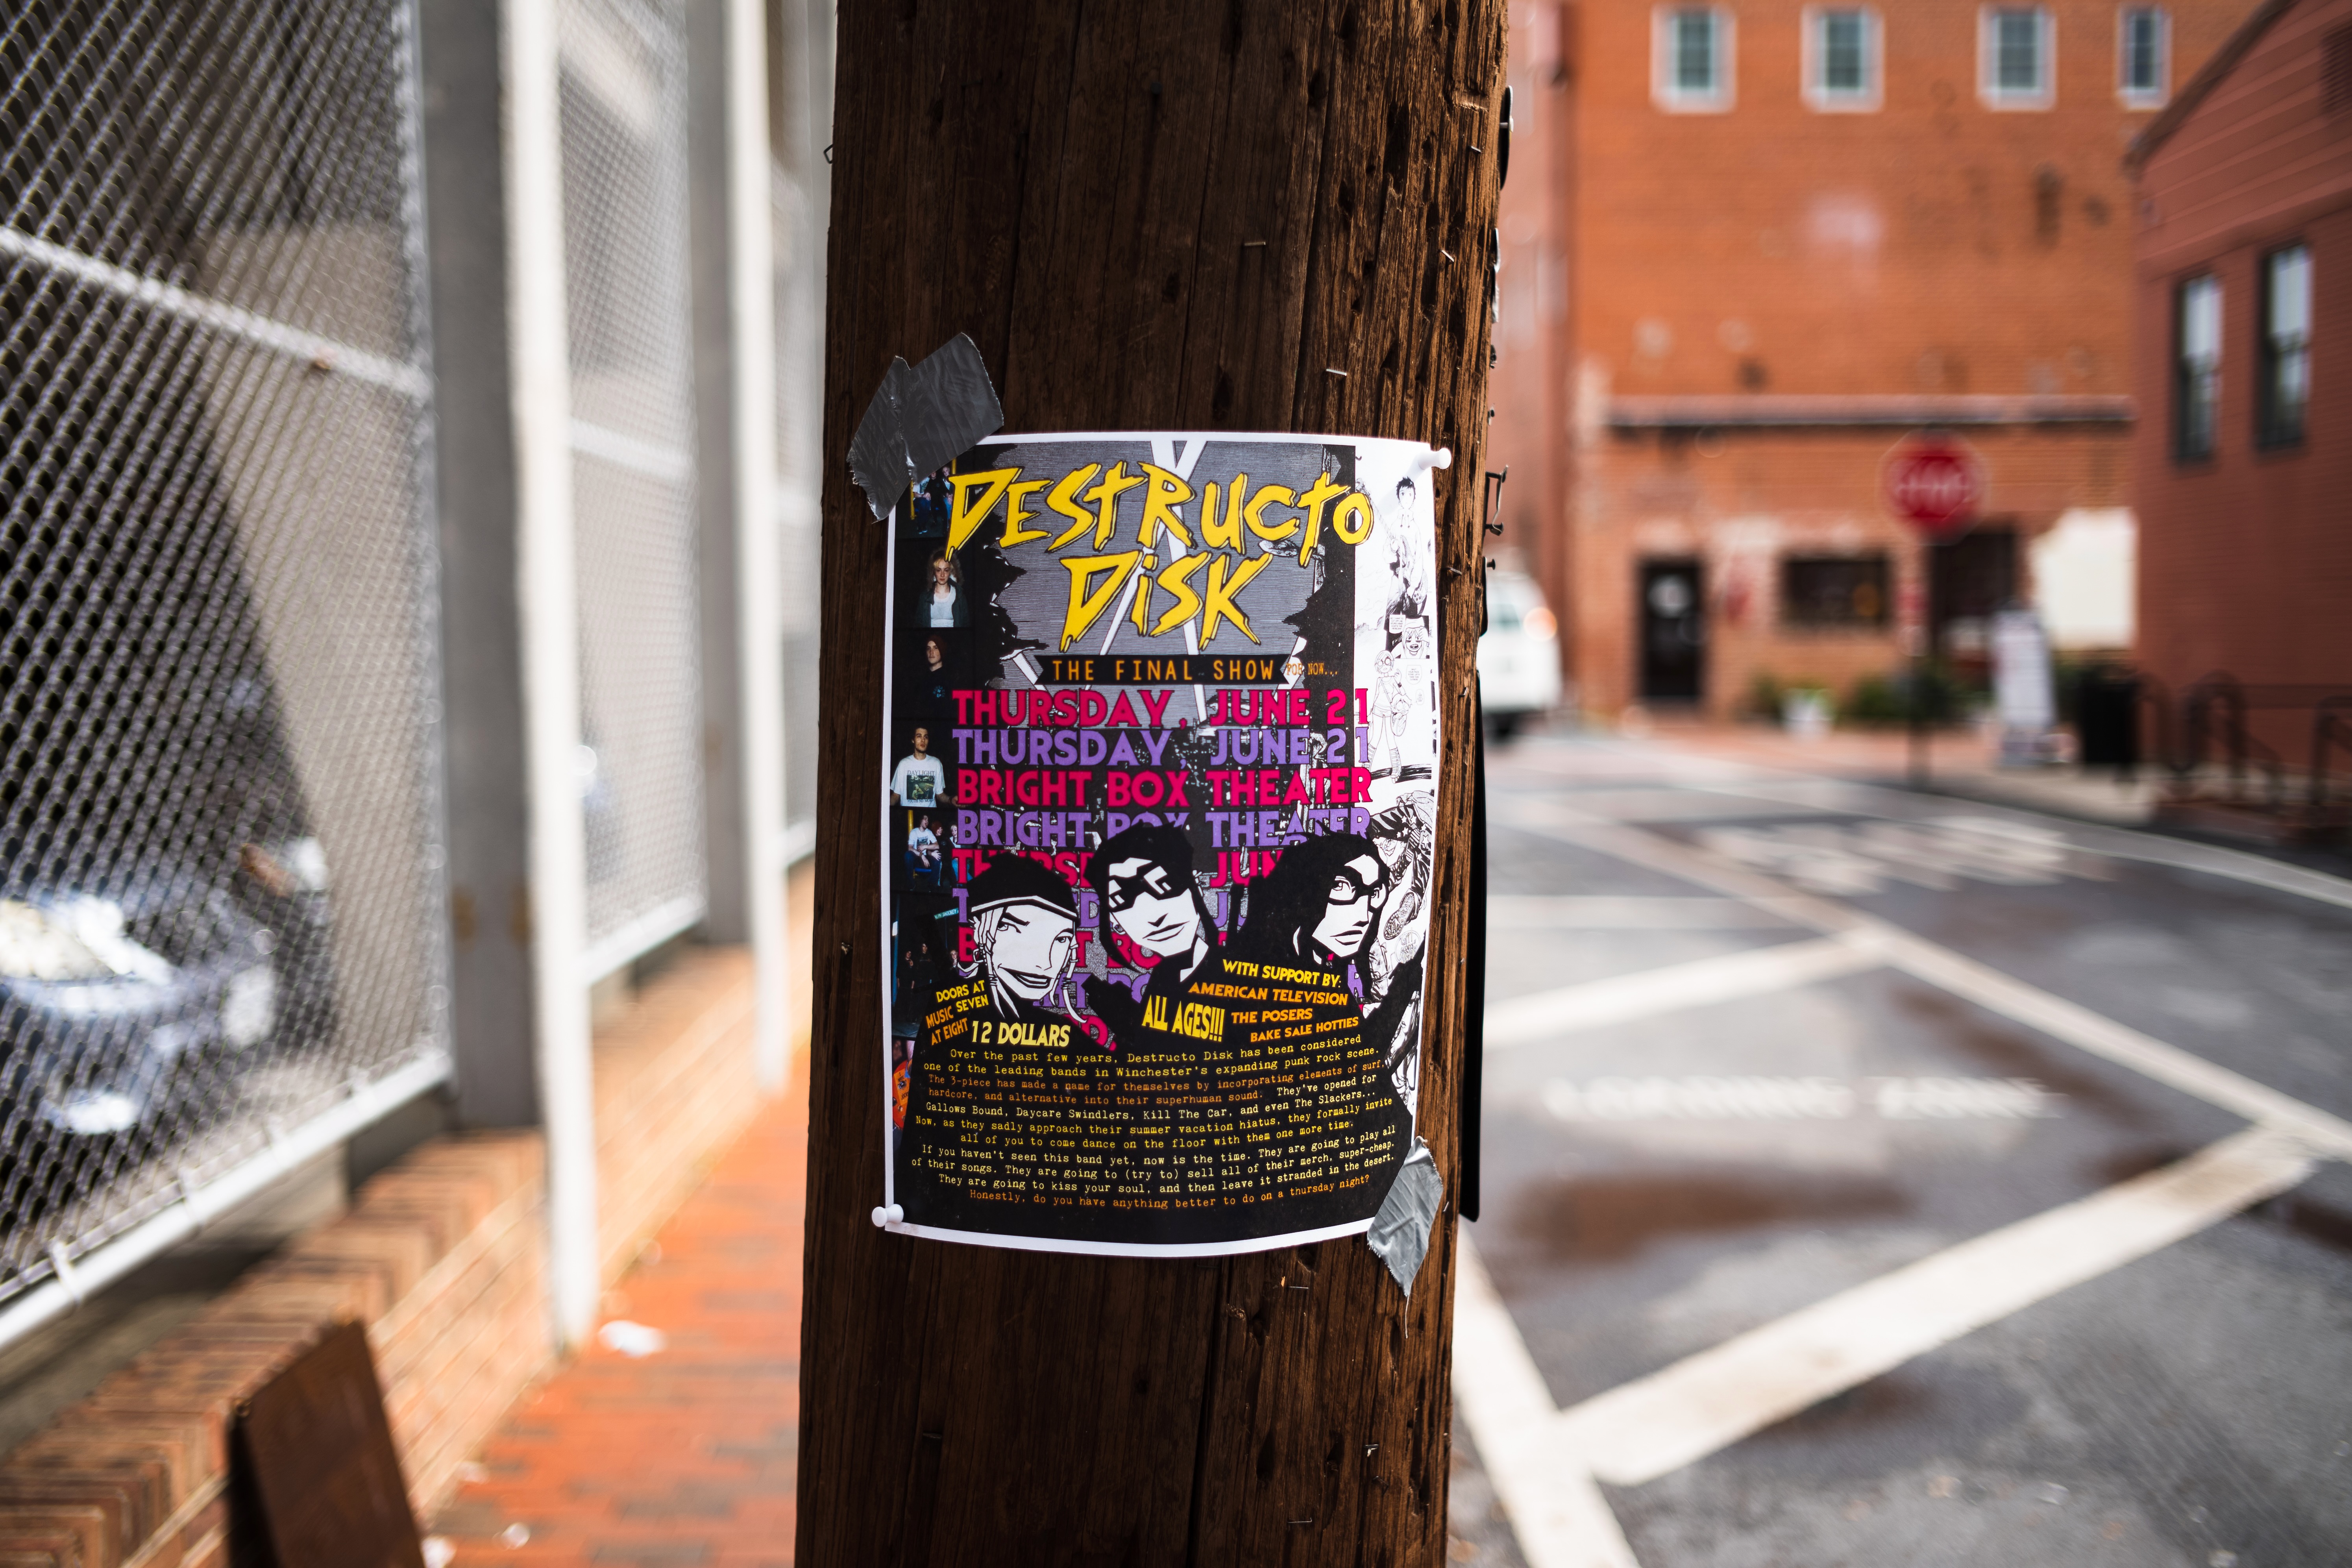 DESTRUCTO
DISK
THE FINAL SHOW FOR NOW...
THURSDAY, JUNE 21
THURSDAY, JUNE 21
BRIGHT BOX THEATER
BRIGHT BOX THEATER
DOORS AT
SEVEN
MUSIC
AT EIGHT
12 DOLLARS
ALL AGES!!!
WITH SUPPORT BY:
AMERICAN TELEVISION
THE POSERS
BAKE SALE HOTTIES
Over the past few years, Destructo Disk has been considered
one of the leading bands in Winchester's expanding punk rock scene.
The 3-piece has made a name for themselves by incorporating elements of surf,
hardcore, and alternative into their superhuman sound. They've opened for
Gallows Bound, Daycare Swindlers, Kill The Car, and even The Slackers...
Now, as they sadly approach their summer vacation hiatus, they formally invite
all of you to come dance on the floor with them one more time.
If you haven't seen this band yet, now is the time. They are going to play all
of their songs. They are going to (try to) sell all of their merch, super-cheap.
They are going to kiss your soul, and then leave it stranded in the desert.
Honestly, do you have anything better to do on a thursday night?
STOP